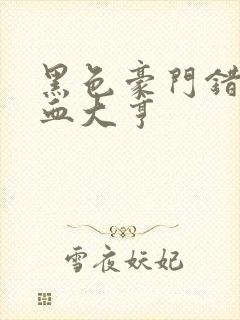 黑色豪門錯
血大亨
雪夜妖妃